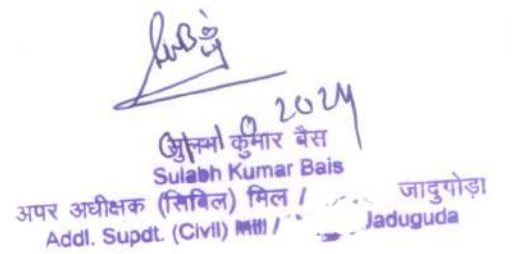 2024
सुलभ कुमार बैस
Sulabh Kumar Bais
अपर अधीक्षक (सिविल) मिल / जादुगोड़ा
Addl. Supdt. (Civil) Mill / Jaduguda